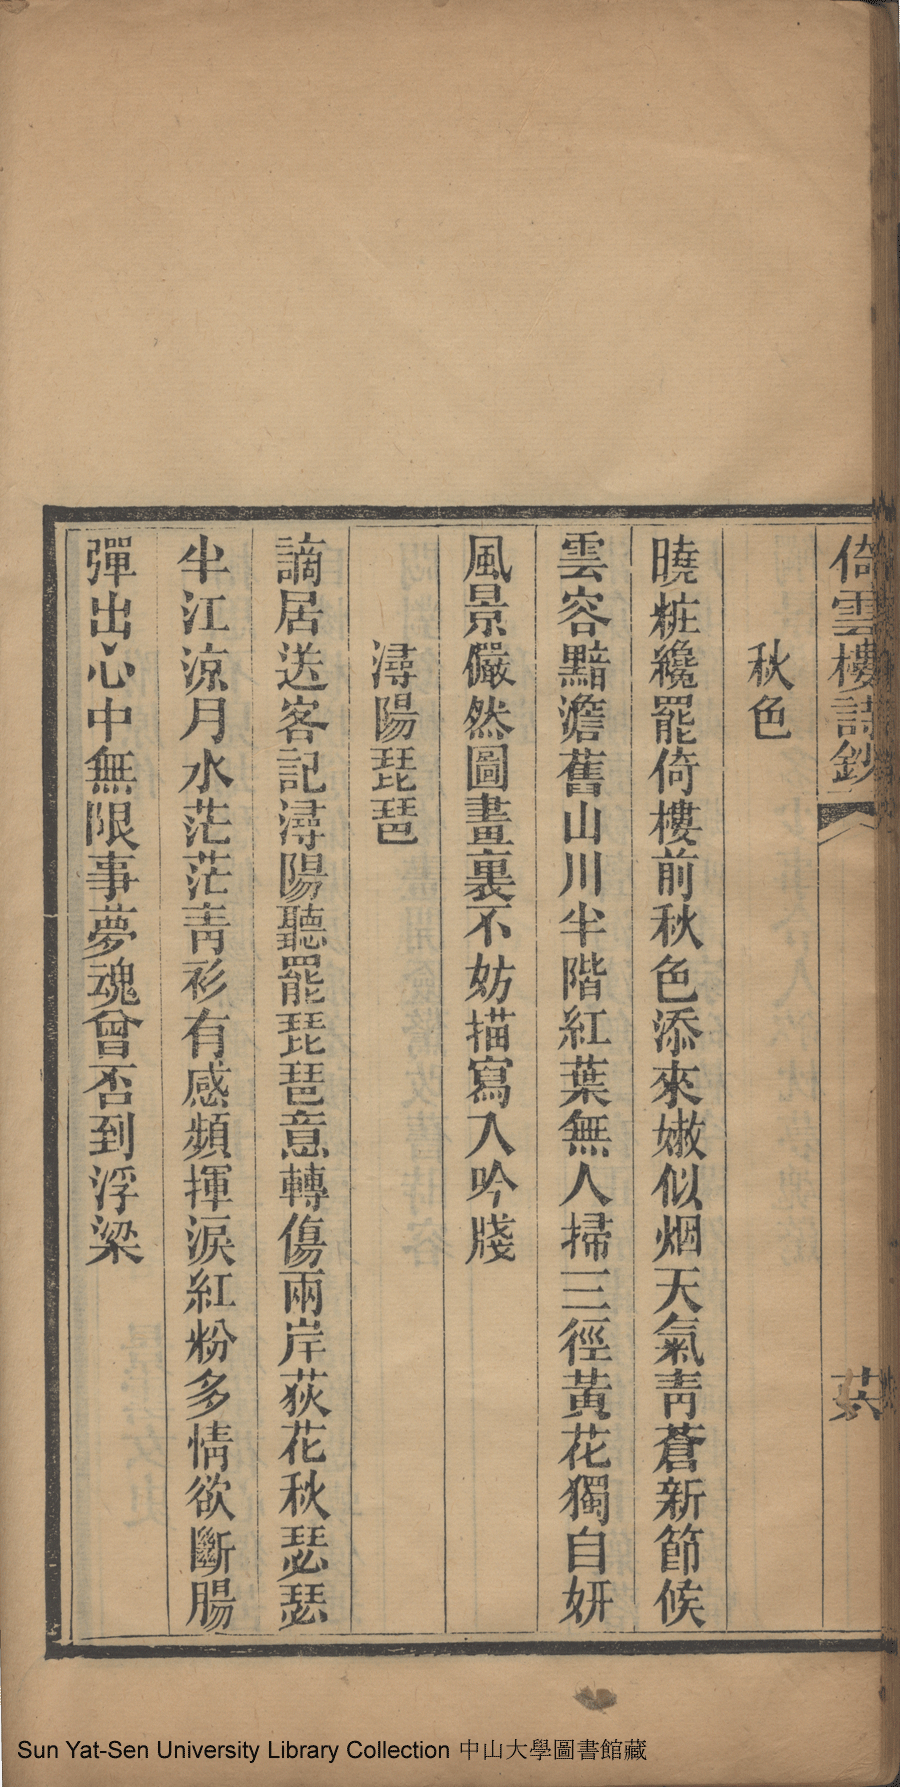 倚雲樓詩鈔
秋色
曉粧纔罷倚樓前秋色添來嫩似烟天氣靑蒼新節候
雲容黯澹舊山川半階紅葉無人掃三徑黃花獨自妍
風景儼然圖畫裏不妨描寫入吟牋
潯陽琵琶
謫居送客記潯陽聽罷琵琶意轉傷兩岸荻花秋瑟瑟
半江涼月水茫茫靑衫有感頻揮淚紅粉多情欲斷腸
彈出心中無限事夢魂曾否到浮梁
Sun Yat-Sen University Library Collection 中山大學圖書館藏